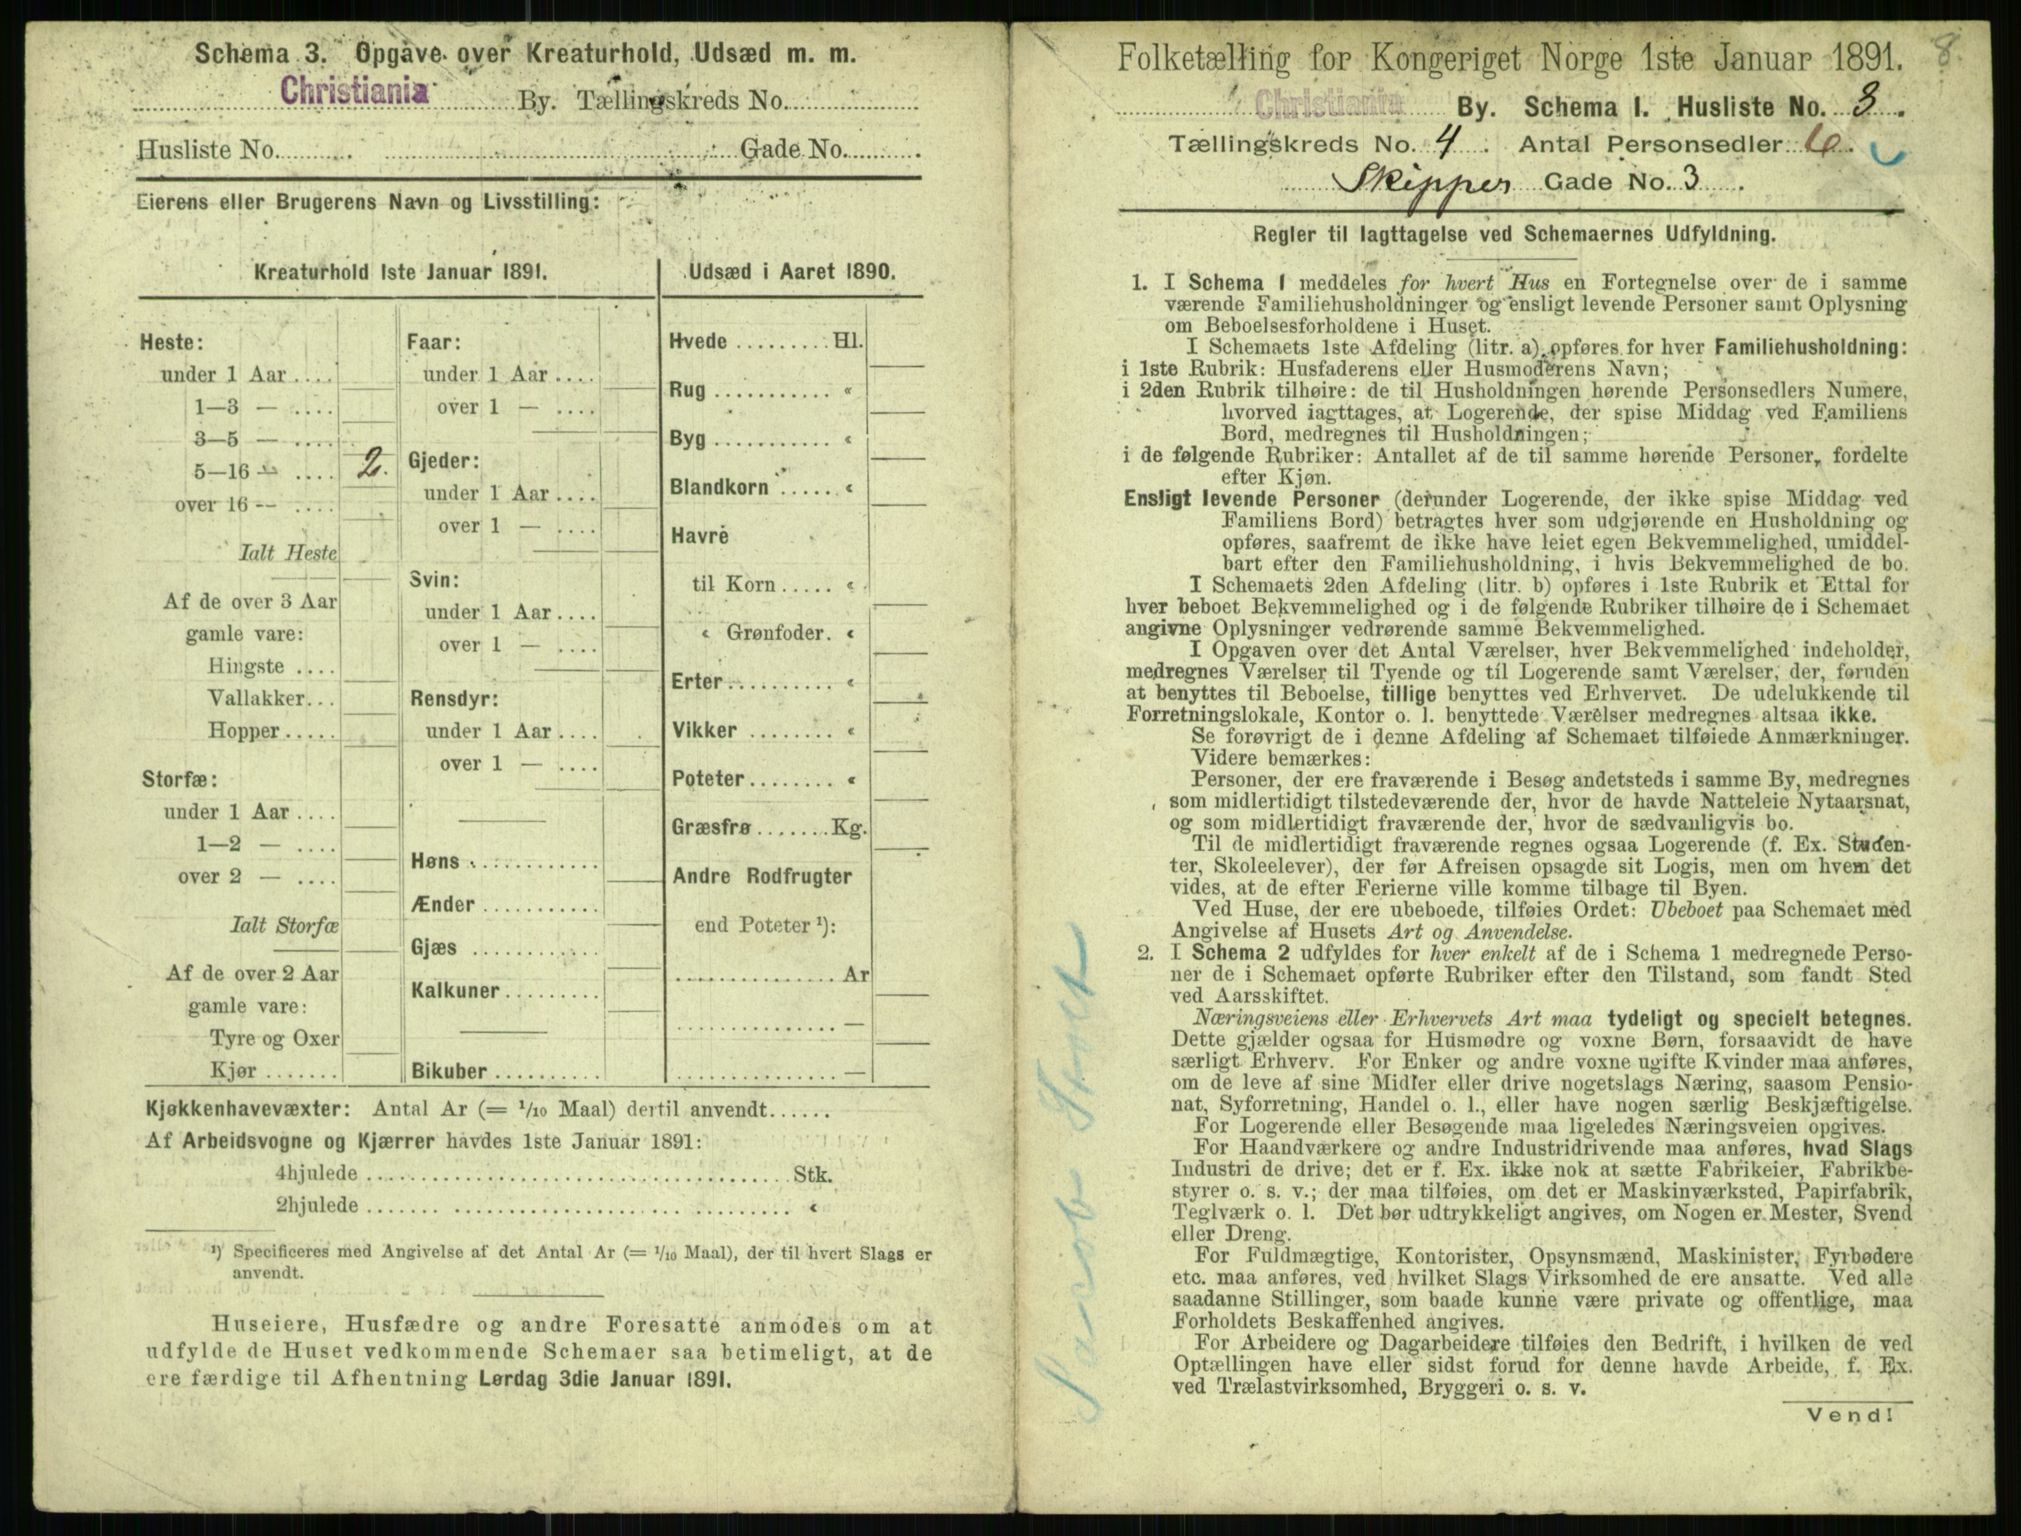 Schema 3. Opgave over Kreaturhold, Udsæd m. m.
Christiania By. Tællingskreds No.
Husliste No. Gade No.
Eierens eller Brugerens Navn og Livsstilling:
Kreaturhold 1ste Januar 1891.
Heste:
under 1 Aar
1—3 —
3—5 —
5—16 — 2.
over 16 —
Ialt Heste
Af de over 3 Aar
gamle vare:
Hingste
Vallakker
Hopper
Storfæ:
under 1 Aar
1—2 —
over 2 —
Ialt Storfæ
Af de over 2 Aar
gamle vare:
Tyre og Oxer
Kjør
Faar:
under 1 Aar
over 1 —
Gjeder:
under 1 Aar
over 1 —
Svin:
under 1 Aar
over 1 —
Rensdyr:
under 1 Aar
over 1 —
Høns
Ænder
Gjæs
Kalkuner
Bikuber
Udsæd i Aaret 1890.
Hvede Hl.
Rug «
Byg «
Blandkorn «
Havre
til Korn «
« Grønfoder «
Erter «
Vikker «
Poteter «
Græsfrø Kg.
Andre Rodfrugter
end Poteter ¹):
Ar
—
—
Kjøkkenhavevæxter: Antal Ar (= 1/10 Maal) dertil anvendt
Af Arbeidsvogne og Kjærrer havdes 1ste Januar 1891:
4hjulede Stk.
2hjulede «
¹) Specificeres med Angivelse af det Antal Ar (= 1/10 Maal), der til hvert Slags er
anvendt.
Huseiere, Husfædre og andre Foresatte anmodes om at
udfylde de Huset vedkommende Schemaer saa betimeligt, at de
ere færdige til Afhentning Lørdag 3die Januar 1891.
8.
Folketælling for Kongeriget Norge 1ste Januar 1891.
Christiania By. Schema 1. Husliste No. 3.
Tællingskreds No. 4. Antal Personsedler 6.
Skipper Gade No. 3.
Regler til Iagttagelse ved Schemaernes Udfyldning.
1. I Schema 1 meddeles for hvert Hus en Fortegnelse over de i samme
værende Familiehusholdninger og ensligt levende Personer samt Oplysning
om Beboelsesforholdene i Huset.
I Schemaets 1ste Afdeling (litr. a) opføres for hver Familiehusholdning:
i 1ste Rubrik: Husfaderens eller Husmoderens Navn;
i 2den Rubrik tilhøire: de til Husholdningen hørende Personsedlers Numere,
hvorved iagttages, at Logerende, der spise Middag ved Familiens
Bord, medregnes til Husholdningen;
i de følgende Rubriker: Antallet af de til samme hørende Personer, fordelte
efter Kjøn.
Ensligt levende Personer (derunder Logerende, der ikke spise Middag ved
Familiens Bord) betragtes hver som udgjørende en Husholdning og
opføres, saafremt de ikke have leiet egen Bekvemmelighed, umiddel-
bart efter den Familiehusholdning, i hvis Bekvemmelighed de bo.
I Schemaets 2den Afdeling (litr. b) opføres i 1ste Rubrik et Ettal for
hver beboet Bekvemmelighed og i de følgende Rubriker tilhøire de i Schemaet
angivne Oplysninger vedrørende samme Bekvemmelighed.
I Opgaven over det Antal Værelser, hver Bekvemmelighed indeholder,
medregnes Værelser til Tyende og til Logerende samt Værelser, der, foruden
at benyttes til Beboelse, tillige benyttes ved Erhvervet. De udelukkende til
Forretningslokale, Kontor o. l. benyttede Værelser medregnes altsaa ikke.
Se forøvrigt de i denne Afdeling af Schemaet tilføiede Anmærkninger.
Videre bemærkes:
Personer, der ere fraværende i Besøg andetsteds i samme By, medregnes
som midlertidigt tilstedeværende der, hvor de havde Natteleie Nytaarsnat,
og som midlertidigt fraværende der, hvor de sædvanligvis bo.
Til de midlertidigt fraværende regnes ogsaa Logerende (f. Ex. Studen-
ter, Skoleelever), der før Afreisen opsagde sit Logis, men om hvem det
vides, at de efter Ferierne ville komme tilbage til Byen.
Ved Huse, der ere ubeboede, tilføies Ordet: Ubeboet paa Schemaet med
Angivelse af Husets Art og Anvendelse.
2. I Schema 2 udfyldes for hver enkelt af de i Schema 1 medregnede Perso-
ner de i Schemaet opførte Rubriker efter den Tilstand, som fandt Sted
ved Aarsskiftet.
Næringsveiens eller Erhvervets Art maa tydeligt og specielt betegnes.
Dette gjælder ogsaa for Husmødre og voxne Børn, forsaavidt de have
særligt Erhverv. For Enker og andre voxne ugifte Kvinder maa anføres,
om de leve af sine Midler eller drive nogetslags Næring, saasom Pensio-
nat, Syforretning, Handel o. l., eller have nogen særlig Beskjæftigelse.
For Logerende eller Besøgende maa ligeledes Næringsveien opgives.
For Haandværkere og andre Industridrivende maa anføres, hvad Slags
Industri de drive; det er f. Ex. ikke nok at sætte Fabrikeier, Fabrikbe-
styrer o. s. v.; der maa tilføies, om det er Maskinværksted, Papirfabrik,
Teglværk o. l. Det bør udtrykkeligt angives, om Nogen er Mester, Svend
eller Dreng.
For Fuldmægtige, Kontorister, Opsynsmænd, Maskinister, Fyrbødere
etc. maa anføres, ved hvilket Slags Virksomhed de ere ansatte. Ved alle
saadanne Stillinger, som baade kunne være private og offentlige, maa
Forholdets Beskaffenhed angives.
For Arbeidere og Dagarbeidere tilføies den Bedrift, i hvilken de ved
Optællingen have eller sidst forud for denne havde Arbeide, f. Ex.
ved Trælastvirksomhed, Bryggeri o. s. v.
Vend!